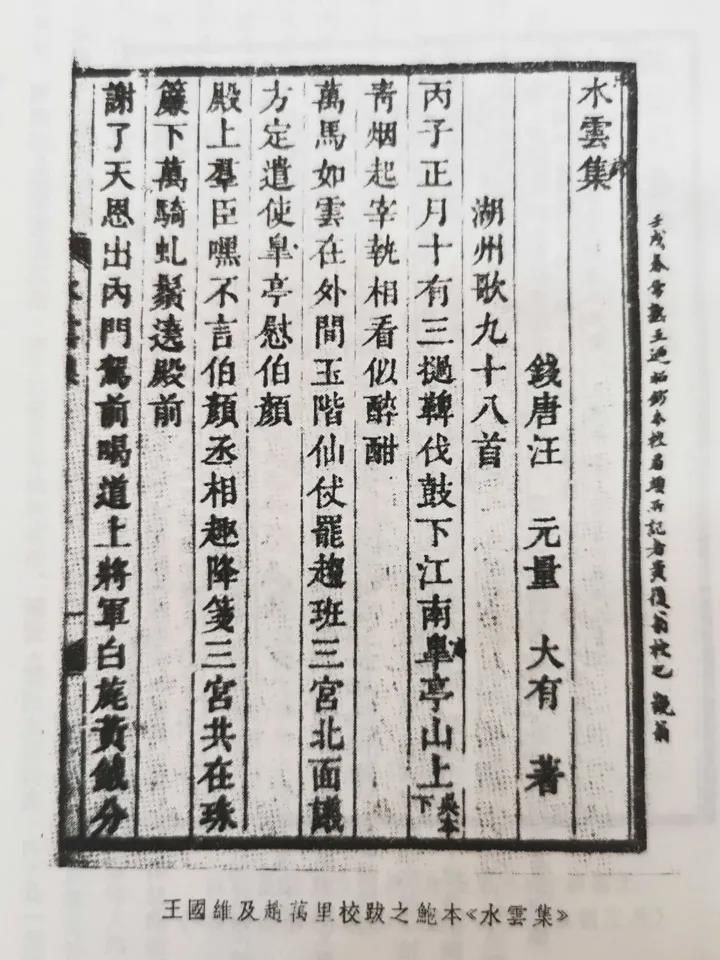 壬戌春常熟王迺昭鈔本校眉所記者黃復翁校也 觀翁
水雲集
錢唐汪 元量 大有 著
湖州歌九十八首
丙子正月十有三撾鞞伐鼓下江南臯亭山上吳本下
青烟起宰執相看似醉酣
萬馬如雲在外間玉階仙仗罷趨班三宮北面議
方定遣使臯亭慰伯顏
殿上羣臣嘿不言伯顏丞相趣降箋三宮共在珠
簾下萬騎虬鬚遶殿前
謝了天恩出內門駕前喝道上將軍白旄黃鉞分
水雲集
王國維及趙萬里校跋之鮑本《水雲集》